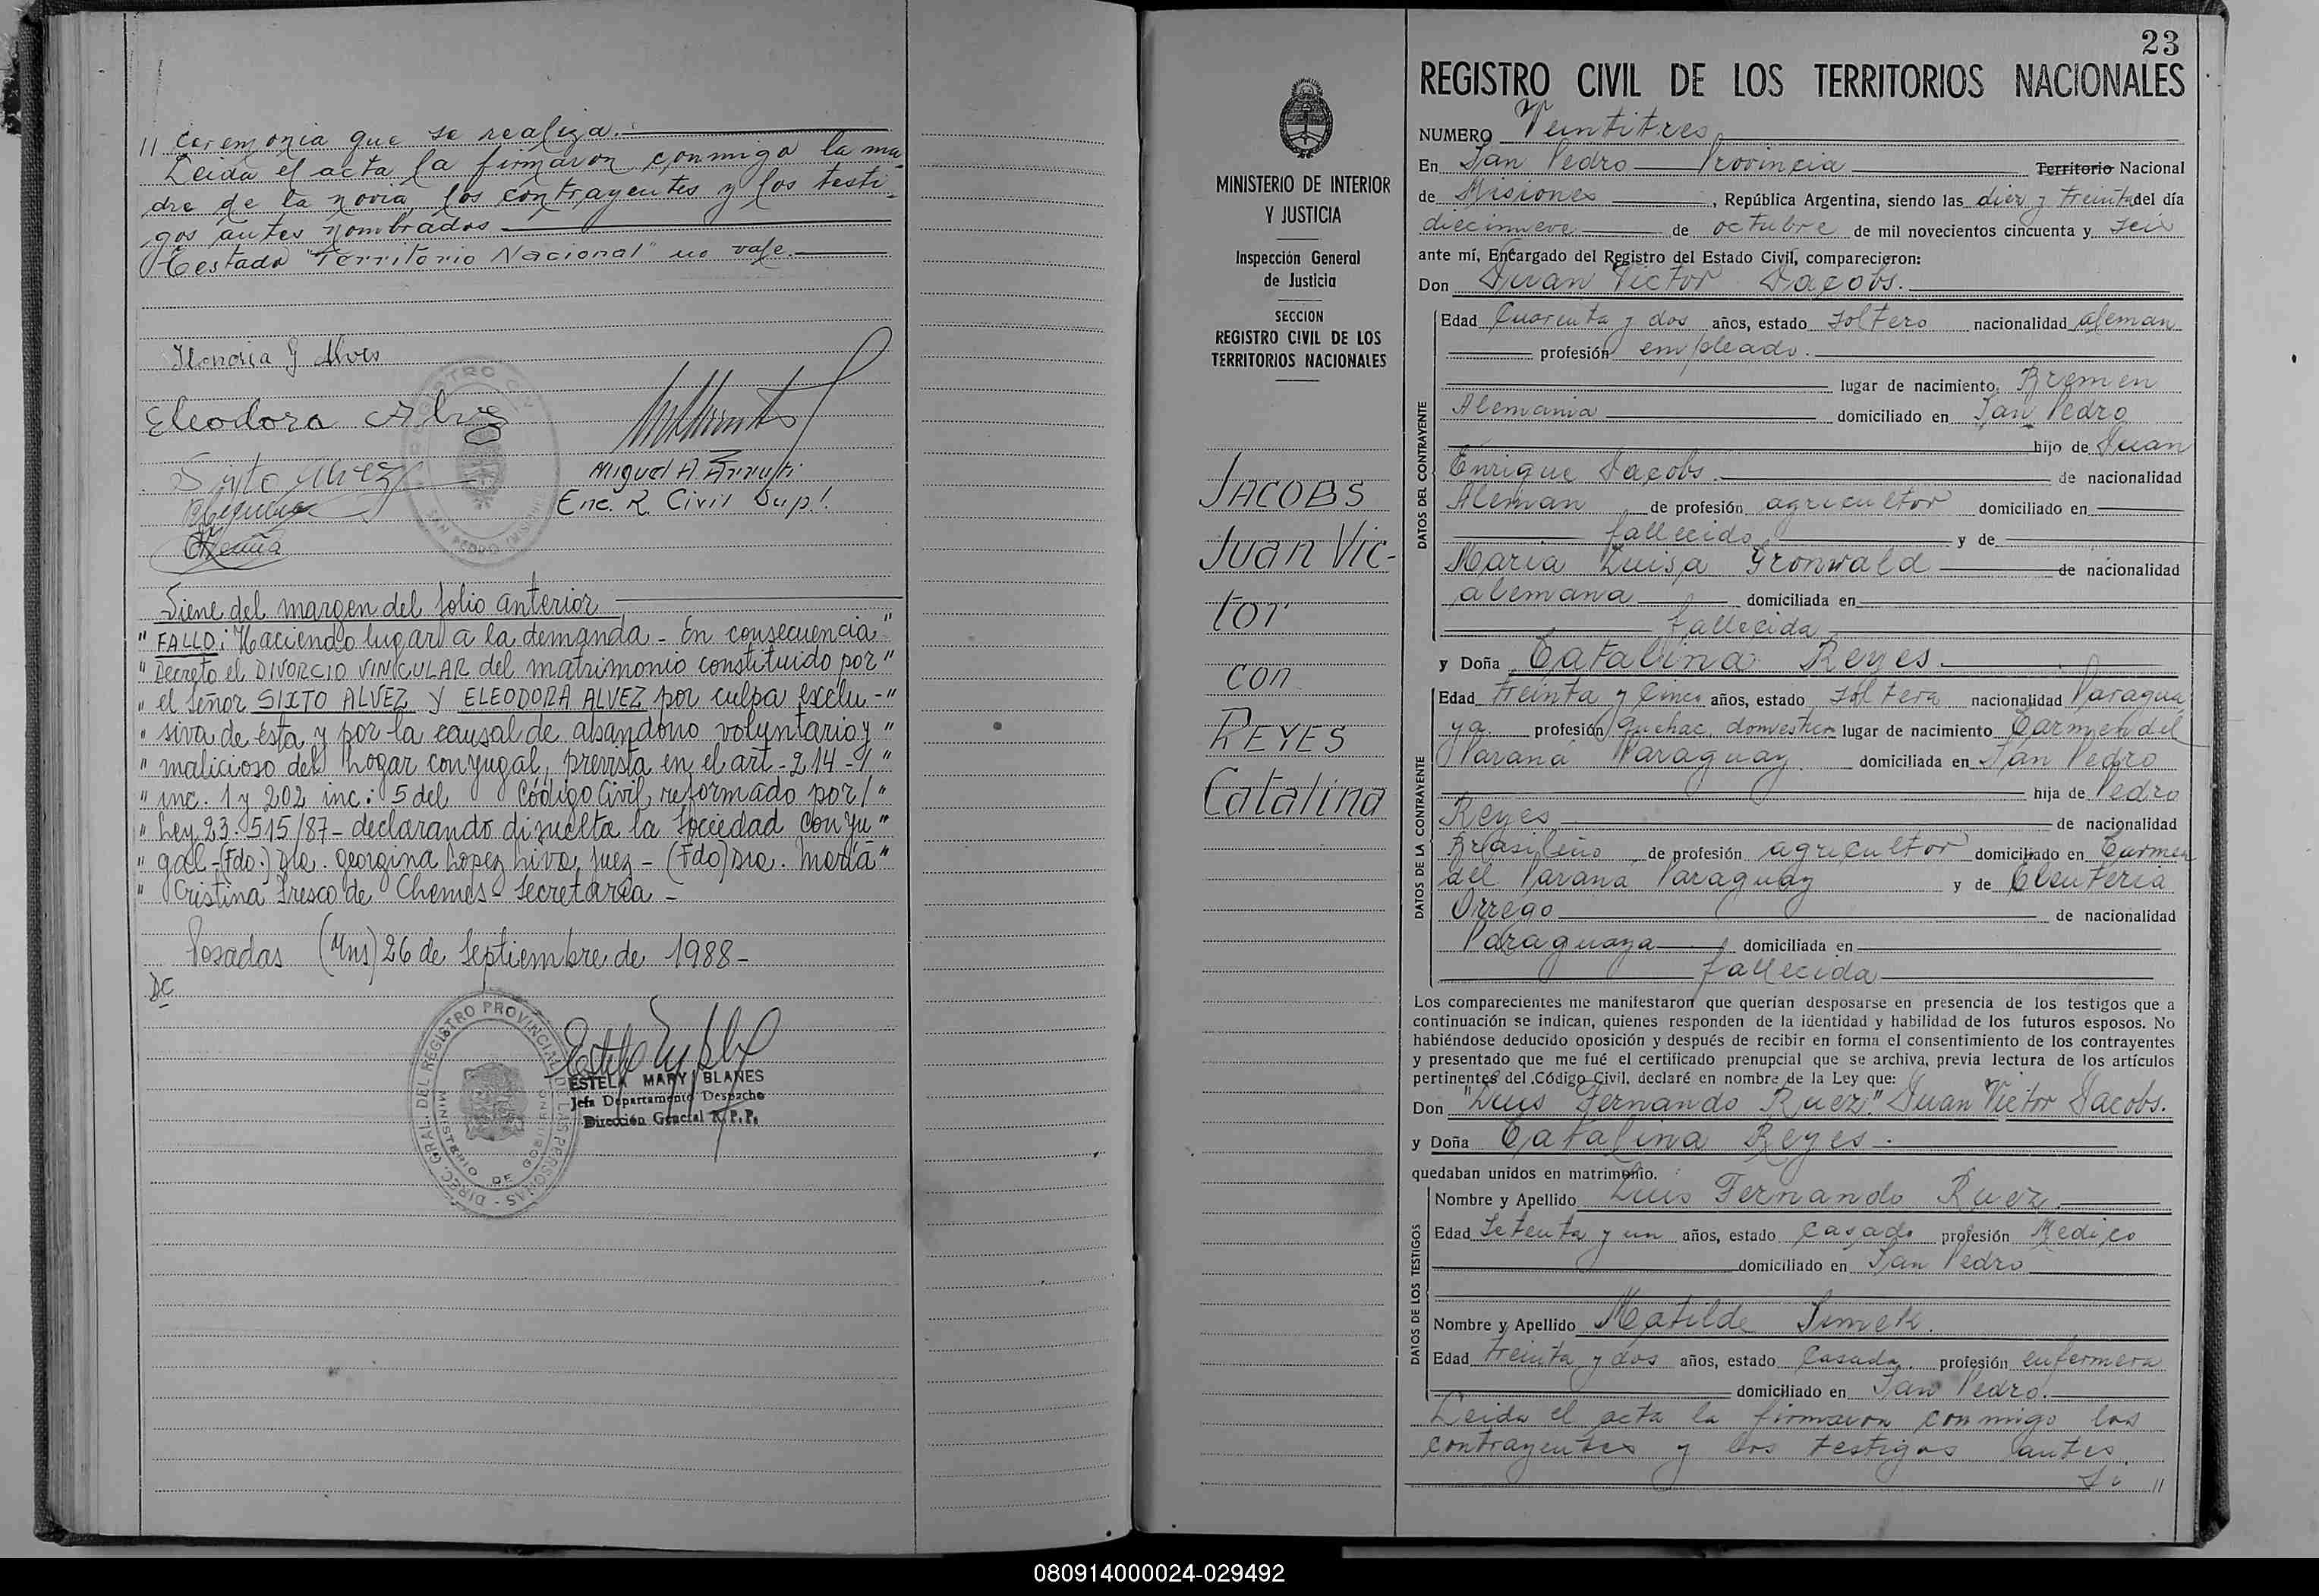 // ceremonia que se realiza.
Leida el acta la firmaron conmigo la ma-
dre de la novia los contrayentes y los testi-
gos antes nombrados
Testado "Territorio Nacional" no vale.
G Alves
Eleodora Alvez
Sixto Alvez
Miguel A
Enc. R. Civil Sup!.
Acuña
SAN PEDRO MISIONES
Viene del margen del folio anterior
" FALLO: Haciendo lugar a la demanda - En consecuencia "
" Decreto el DIVORCIO VINCULAR del matrimonio constituido por "
" el Señor SIXTO ALVEZ y ELEODORA ALVEZ por culpa exclu- "
" siva de ésta y por la causal de abandono voluntario y "
" malicioso del hogar conyugal, prevista en el art - 214 - / "
" inc. 1 y 202 inc: 5 del Código Civil, reformado por / "
" Ley 23.515/87 - declarando disuelta la Sociedad Conyu "
" gal - (Fdo.) Dra. Georgina Lopez Liva Juez - (Fdo) Dra. María "
" Cristina Fresco de Chemes - Secretaria -
Posadas (Mns) 26 de Septiembre de 1988 -
DC
DIREC. GRAL. DEL REGISTRO PROVINCIAL DE LAS PERSONAS
MINISTERIO DE GOBIERNO
ESTELA MARY BLANES
Jefa Departamento Despacho
Dirección General R.P.P.
MINISTERIO DE INTERIOR
Y JUSTICIA
Inspección General
de Justicia
SECCION
REGISTRO CIVIL DE LOS
TERRITORIOS NACIONALES
JACOBS
Juan Vic-
tor
con
REYES
Catalina
23
REGISTRO CIVIL DE LOS TERRITORIOS NACIONALES
NUMERO Veintitres
En San Pedro Provincia Territorio Nacional
de Misiones , República Argentina, siendo las diez y treinta del día
diecinueve de octubre de mil novecientos cincuenta y seis
ante mí, Encargado del Registro del Estado Civil, comparecieron:
Don Juan Victor Jacobs.
DATOS DEL CONTRAYENTE
Edad Cuarenta y dos años, estado soltero nacionalidad aleman
profesión empleado.
lugar de nacimiento. Bremen
Alemania domiciliado en San Pedro
hijo de Juan
Enrique Jacobs. de nacionalidad
Aleman de profesión agricultor domiciliado en
fallecido y de
Maria Luisa Gronwald de nacionalidad
alemana domiciliada en
fallecida
y Doña Catalina Reyes.
DATOS DE LA CONTRAYENTE
Edad treinta y cinco años, estado soltera nacionalidad Paragua
ya. profesión quehac. domesticos lugar de nacimiento Carmen del
Paraná Paraguay domiciliada en San Pedro
hija de Pedro
Reyes de nacionalidad
Brasileño de profesión agricultor domiciliado en Carmen
del Parana Paraguay y de Eleuteria
Orrego de nacionalidad
Paraguaya domiciliada en
fallecida
Los comparecientes me manifestaron que querían desposarse en presencia de los testigos que a
continuación se indican, quienes responden de la identidad y habilidad de los futuros esposos. No
habiéndose deducido oposición y después de recibir en forma el consentimiento de los contrayentes
y presentado que me fué el certificado prenupcial que se archiva, previa lectura de los artículos
pertinentes del Código Civil, declaré en nombre de la Ley que:
Don "Luis Fernando Ruez." Juan Victor Jacobs.
y Doña Catalina Reyes.
quedaban unidos en matrimonio.
DATOS DE LOS TESTIGOS
Nombre y Apellido Luis Fernando Ruez.
Edad Setenta y un años, estado casado profesión Medico
domiciliado en San Pedro
Nombre y Apellido Matilde Simek.
Edad treinta y dos años, estado Casada. profesión enfermera
domiciliado en San Pedro.
Leida el acta la firmaron conmigo los
contrayentes y los testigos antes
//
080914000024-029492